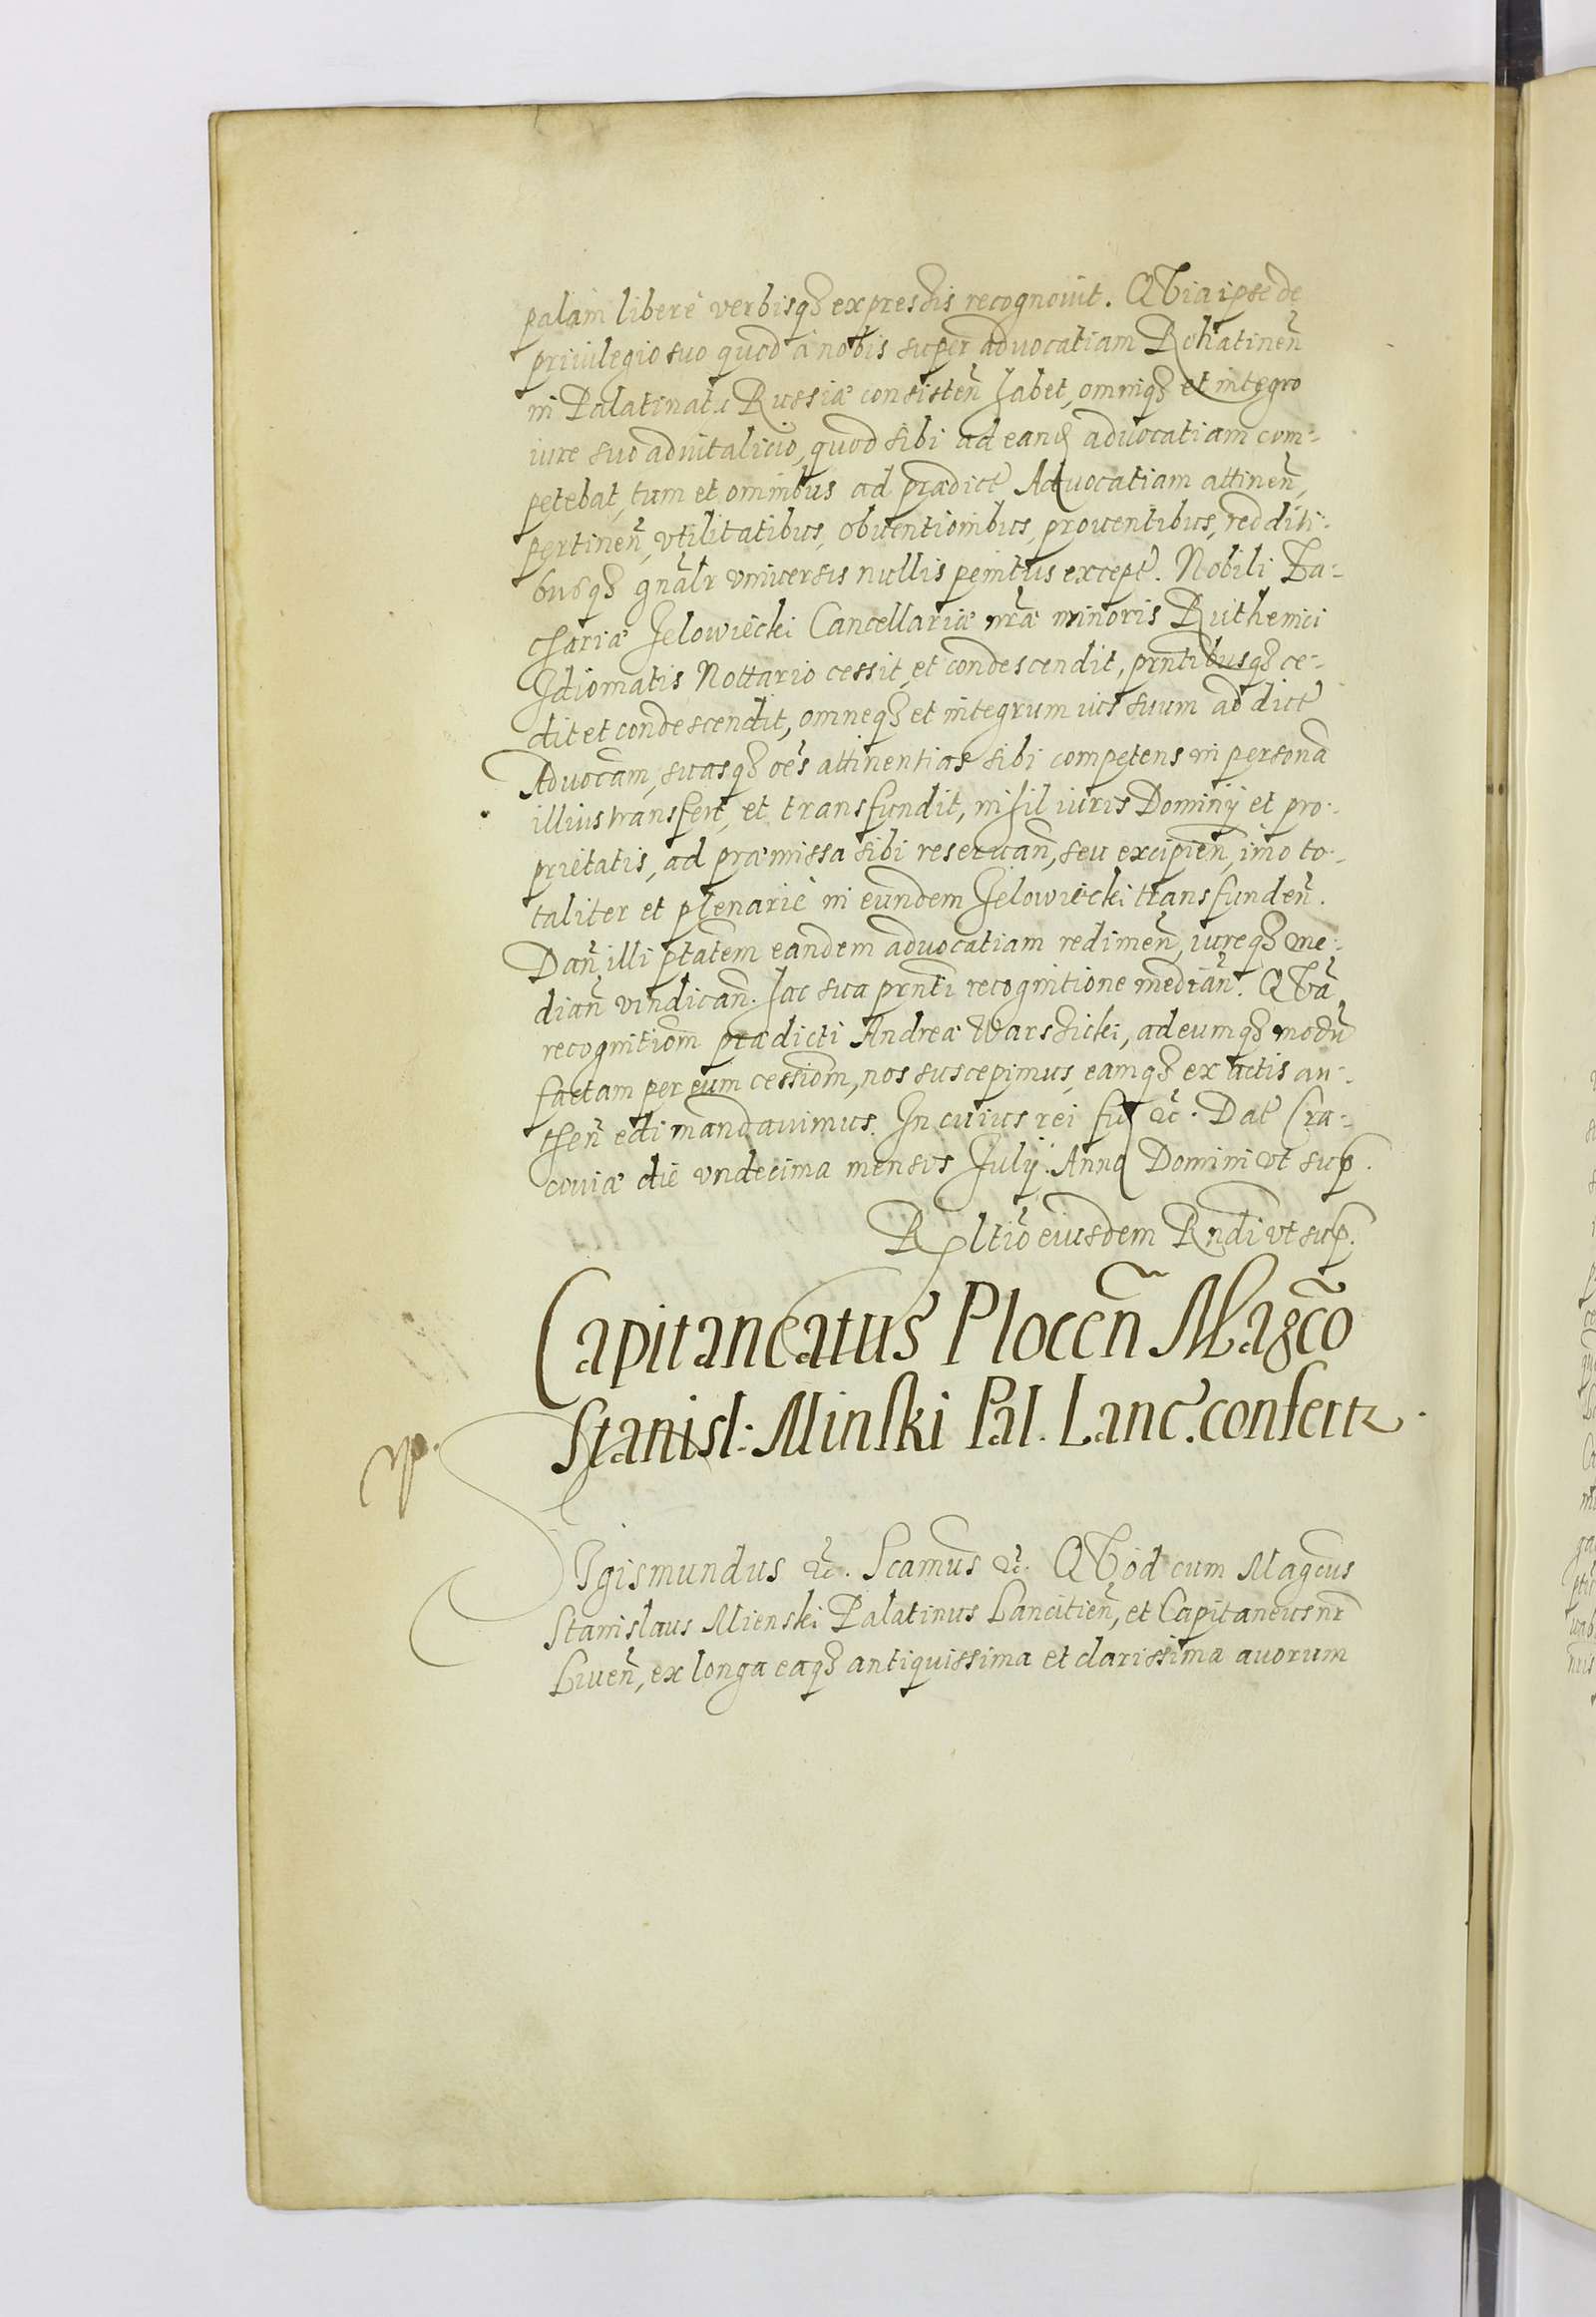 palam liberè verbisq₃ expressis recognouit. QVia ipse de
priuilegio suo quod a nobis super aduocatiam Rohatineñ
in Palatinatu Russiæ consisteñ habet, omniq₃ et integro
iure suo aduitalicio, quod sibi ad eand aduocatiam com-
petebat, tum et omnibus ad prædict Aduocatiam attineñ,
pertineñ, vtilitatibus, obuentionibus, prouentibus, redditi-
busq₃ gñalr vniuersis nullis penitus except. Nobili Za-
chariæ Jelowiecki Cancellariæ nræ minoris Ruthenici
Idiomatis Nottario cessit, et condescendit, prñtibusq₃ ce-
dit et condescendit, omneq₃ et integrum ius suum ad dict
Aduocam, suasq₃ oẽs attinentias sibi competens in persona
illius transfert, et transfundit, nihil iuris Dominij et pro-
prietatis, ad præmissa sibi reseruañ, seu excipieñ, imo to-
taliter et plenariè in eundem Jelowiecki transfundeñ.
Dañ illi ptatem eandem aduocatiam redimeñ, iureq₃ me-
diañ vindicañ. hac sua prñti recognitione mediañ. QVã
recognitiom prædicti Andreæ Warsicki, ad eumq₃ modũ
factam per eum cessiom, nos suscepimus, eamq₃ ex actis au-
theñ edi mandauimus. In cuius rei fid &c. Dat Cra-
couiæ die vndecima mensis Julij. Anno Domini vt sup.
Rltiõ eiusdem Rndi vt sup.
Capitaneatus Ploceñ Magco
Stanisl: Minski Pal. Lanc. confertr.
Sigismundus &c. Scamus &c. QVod cum Magcus
Stanislaus Mienski Palatinus Lancitieñ, et Capitaneus nr
Liueñ, ex longa eaq₃ antiquissima et clarissima auorum